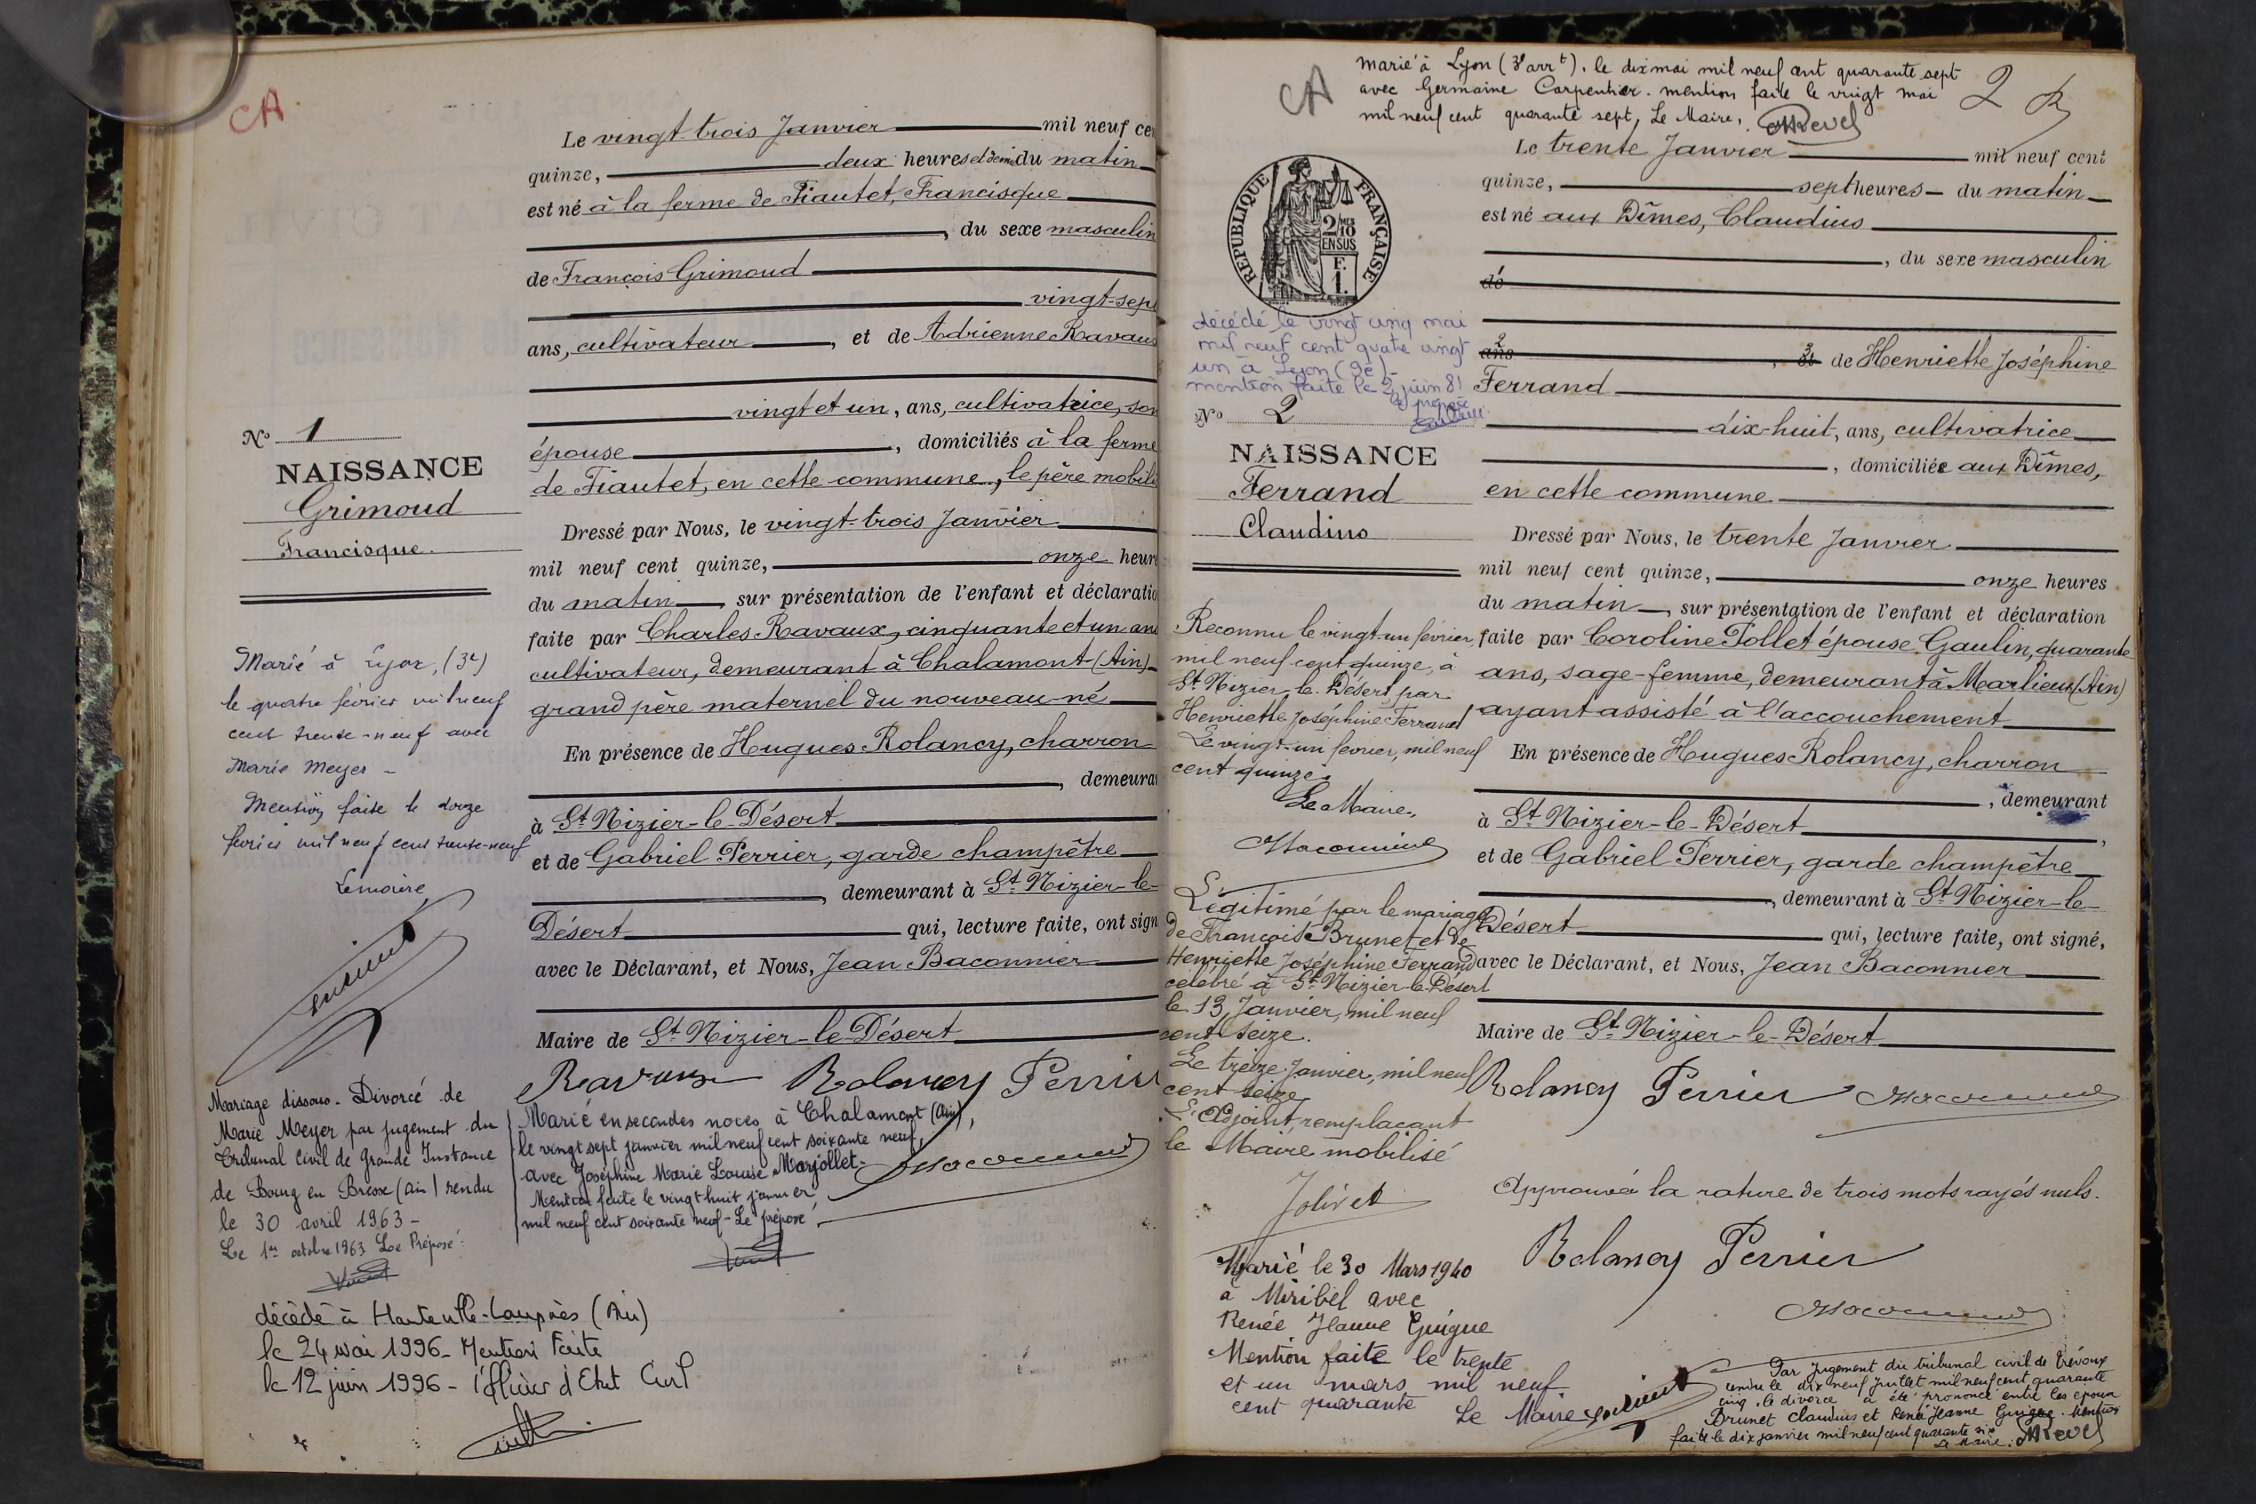 CA
Le vingt-trois Janvier mil neuf cen
quinze, deux heures et demie du matin
est né à la ferme de Fiautet, Francisque
, du sexe masculin
de François Grimoud
vingt-sept
ans, cultivateur, et de Adrienne Ravaux
vingt et un, ans, cultivatrice, son
épouse, domiciliés à la ferme
de Fiautet, en cette commune, le père mobili
Dressé par Nous, le vingt-trois Janvier
mil neuf cent quinze, onze heur
du matin, sur présentation de l'enfant et déclaratio
faite par Charles Ravaux, cinquante et un ans
cultivateur, demeurant à Chalamont (Ain)
grand père maternel du nouveau-né
En présence de Hugues Rolancy, charron
, demeura
à St Nizier-le-Désert
et de Gabriel Perrier, garde champêtre
, demeurant à St Nizier-le-
Désert qui, lecture faite, ont sign
avec le Déclarant, et Nous, Jean Baconnier
Maire de St Nizier-le-Désert
Ravaux Rolancy Perrier
No 1
NAISSANCE
Grimoud
Francisque
Marié à Lyon, (3e)
le quatre février mil neuf
cent trente-neuf avec
Marie Meyer -
Mention faite le douze
février mil neuf cent trente-neuf
Le maire
Mariage dissous. Divorcé de
Marie Meyer par jugement du
Tribunal Civil de Grande Instance
de Bourg en Bresse (Ain) rendu
le 30 avril 1963 -
Le 1er octobre 1963 Le Préposé :
Marié en secondes noces à Chalamont (Ain),
le vingt sept janvier mil neuf cent soixante neuf,
avec Joséphine Marie Louise Marjollet.
Mention faite le vingt huit janvier
mil neuf cent soixante neuf - Le préposé,
décédé à Hauteville-Lompnès (Ain)
le 24 mai 1996 - Mention Faite
le 12 juin 1996 - l'officier d'Etat Civil
CA
marié à Lyon (3e arrt), le dix mai mil neuf cent quarante sept
avec Germaine Carpentier. mention faite le vingt mai
mil neuf cent quarante sept, Le Maire, Revel
2
Le trente Janvier mil neuf cent
quinze, sept heures du matin
est né aux Dîmes, Claudius
, du sexe masculin
de
ans, et de Henriette Joséphine
Ferrand
dix-huit, ans, cultivatrice
, domiciliée aux Dîmes,
en cette commune
Dressé par Nous, le trente Janvier
mil neuf cent quinze, onze heures
du matin, sur présentation de l'enfant et déclaration
faite par Caroline Pollet épouse Gaulin, quarante
ans, sage-femme, demeurant à Marlieux (Ain)
ayant assisté à l'accouchement
En présence de Hugues Rolancy, charron
, demeurant
à St Nizier-le-Désert,
et de Gabriel Perrier, garde champêtre
, demeurant à St Nizier-le-
Désert qui, lecture faite, ont signé,
avec le Déclarant, et Nous, Jean Baconnier
Maire de St Nizier-le-Désert
Rolancy Perrier Baconnier
Approuvé la rature de trois mots rayés nuls.
Rolancy Perrier
Baconnier
REPUBLIQUE FRANÇAISE
2/10 EN SUS
F. 1.
décédé le vingt cinq mai
mil neuf cent quatre vingt
un à Lyon (9e) -
mention faite le 2 juin 81
Le préposé
No 2
NAISSANCE
Ferrand
Claudius
Reconnu le vingt-un février
mil neuf cent quinze, à
St Nizier-le-Désert par
Henriette Joséphine Ferrand
Le vingt-un février, mil neuf
cent quinze.
Le Maire,
Baconnier
Légitimé par le mariage
de François Brunet et de
Henriette Joséphine Ferrand
célébré à St Nizier-le-Désert
le 13 Janvier, mil neuf
cent seize.
Le treize Janvier, mil neuf
cent seize
L'Adjoint remplaçant
le Maire mobilisé
Jolivet
Marié le 30 Mars 1940
à Miribel avec
Renée Jeanne Guigue
Mention faite le trente
et un mars mil neuf
cent quarante Le Maire
Par jugement du tribunal civil de Trévoux
rendu le dix neuf Juillet mil neuf cent quarante
cinq, le divorce a été prononcé entre les époux
Brunet Claudius et Renée Jeanne Guigue. Mention
faite le dix janvier mil neuf cent quarante six
Le Maire : Revel